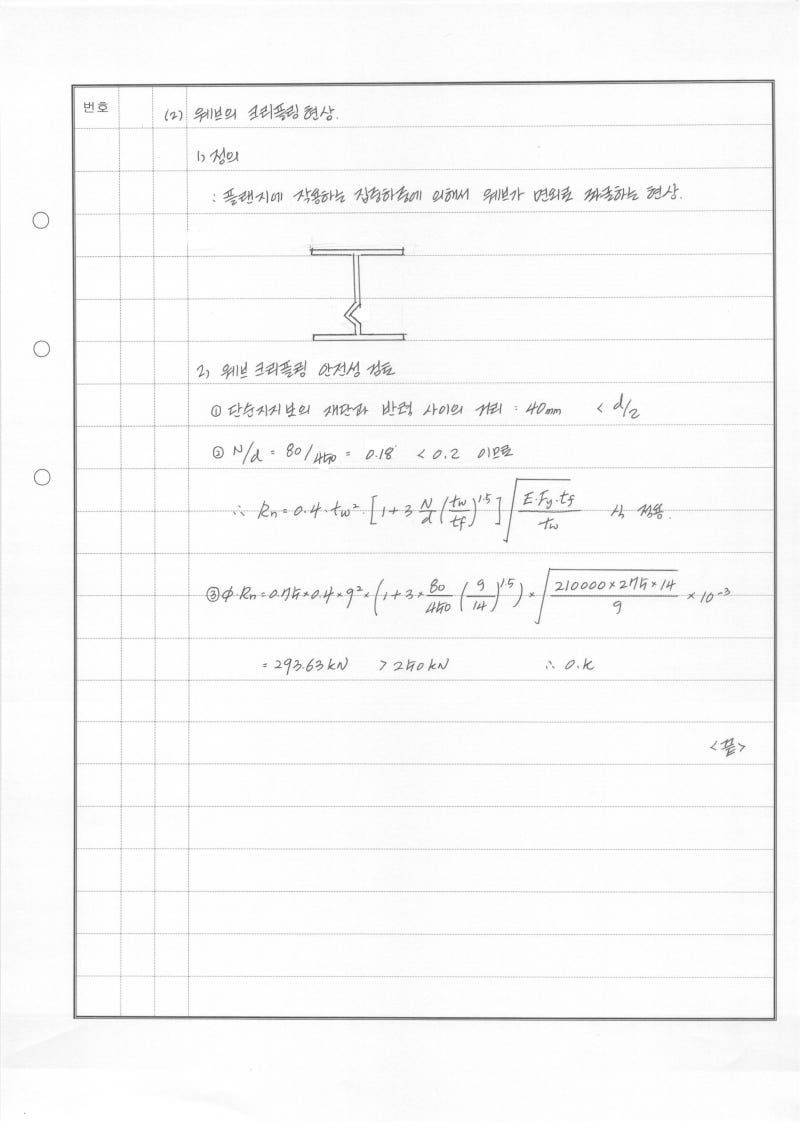 번호
(2) 웨브의 크리플링 현상.
1) 정의
: 플랜지에 작용하는 집중하중에 의해서 웨브가 면외로 좌굴하는 현상.
2) 웨브 크리플링 안전성 검토
① 단순지지보의 재단과 반력 사이의 거리 : 40mm < d/2
② N/d = 80/450 = 0.18 < 0.2 이므로
∴ Rn = 0.4·tw²·[1+3 N/d (tw/tf)^1.5] √(E·Fy·tf/tw) 식 적용.
③ φ·Rn = 0.75×0.4×9²×(1+3×80/450 (9/14)^1.5)×√(210000×275×14/9) ×10⁻³
= 293.63kN > 250kN ∴ O.K
<끝>